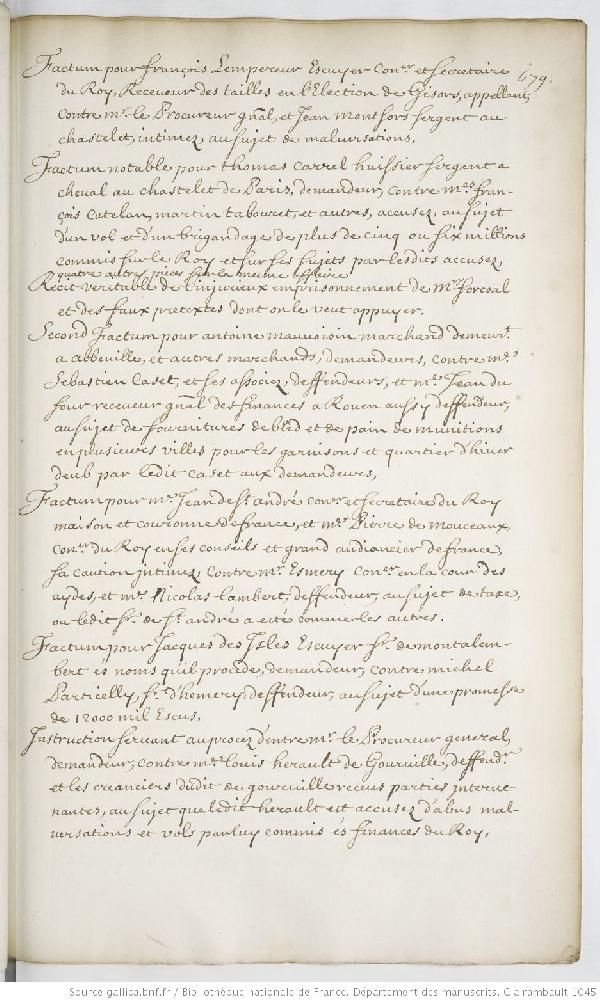 679.
Factum pour françois Lempereur Escuyer Con.er et secretaire
du Roy, Receveur des tailles en l'Election de Gisors, appellant,
contre m.r le Procureur gñal, et Jean montfors sergent au
chastelet, intimez, au sujet de malversations,
Factum notable pour thomas carrel huissier sergent a
cheval au chastelet de Paris, demandeur, contre m.es fran-
çois Catelan, martin tabouret, et autres, accusez, au sujet
d'un vol et d'un brigandage de plus de cinq ou six millions
commis sur le Roy et sur ses sujets par lesdits accusez,
quatre autres pieces sur la meme affaire
Recit veritable de l'injurieux emprisonnement de M.e forcoal
et des faux pretextes dont on le veut appuyer.
Second Factum pour antoine mauvoisin marchand demeur.t
a abbeville, et autres marchands, demandeurs, contre m.e
Sebastien Caset, et ses associez, deffendeurs, et m.e Jean du
four receveur gñal des finances a Rouen aussy deffendeur,
au sujet de fournitures de bled et de pain de munitions
en plusieurs villes pour les garnisons et quartier d'hiver
deub par ledit Caset aux demandeurs,
Factum pour m.e Jean de s.t andré con.er et secretaire du Roy
maison et couronne de france, et m.e Pierre de mouceaux,
con.er du Roy en ses conseils et grand audiancier de france,
sa caution intimez, contre m.r Esmery Con.er en la cour des
aydes, et m.e Nicolas lambert, deffendeur, au sujet de taxe,
ou ledit s.r de s.t andré a eté comme les autres.
Factum pour Jacques des Isles Escuyer s.r de montalem-
bert és noms qu'il procede, demandeur, contre michel
Particelly, s.r d'hemery, deffendeur, au sujet d'une promesse
de 12000 mil Escus,
Instruction servant au procez d'entre m.r le Procureur general,
demandeur, contre m.e louis herault de Gourville, deffend.r
et les creanciers dudit de gourville receus parties interve
nantes, au sujet que ledit herault est accusez d'abus mal-
versations et vols par luy commis és finances du Roy,
Source gallica.bnf.fr / Bibliothèque nationale de France. Département des manuscrits. Clairambault 1045